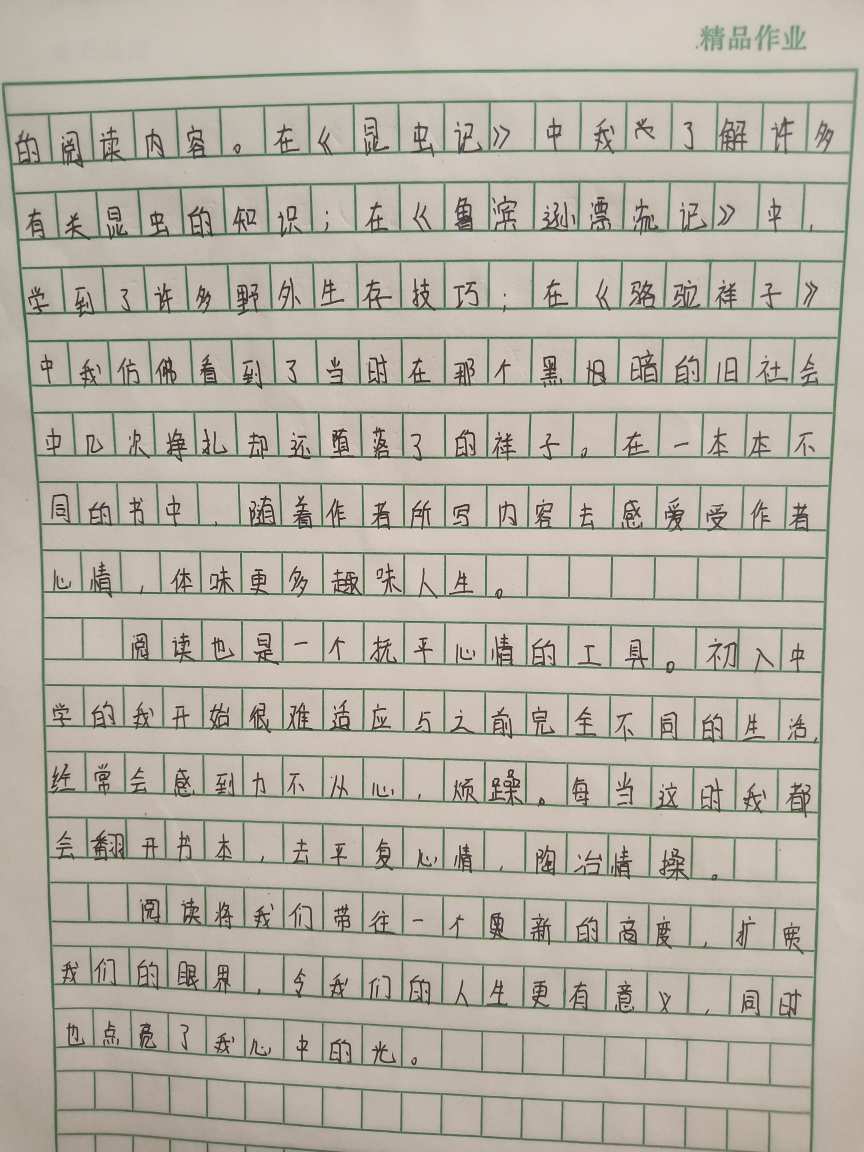 精品作业
的阅读内容。在《昆虫记》中我也了解许多
有关昆虫的知识；在《鲁滨逊漂流记》中，
学到了许多野外生存技巧；在《骆驼祥子》
中我仿佛看到了当时在那个黑暗的旧社会
中几次挣扎却还堕落了的祥子。在一本本不
同的书中，随着作者所写内容去感爱受作者
心情，体味更多趣味人生。
阅读也是一个抚平心情的工具。初入中
学的我开始很难适应与之前完全不同的生活，
经常会感到力不从心，烦躁。每当这时我都
会翻开书本，去平复心情，陶冶情操。
阅读将我们带往一个更新的高度，扩宽
我们的眼界，令我们的人生更有意义，同时
也点亮了我心中的光。